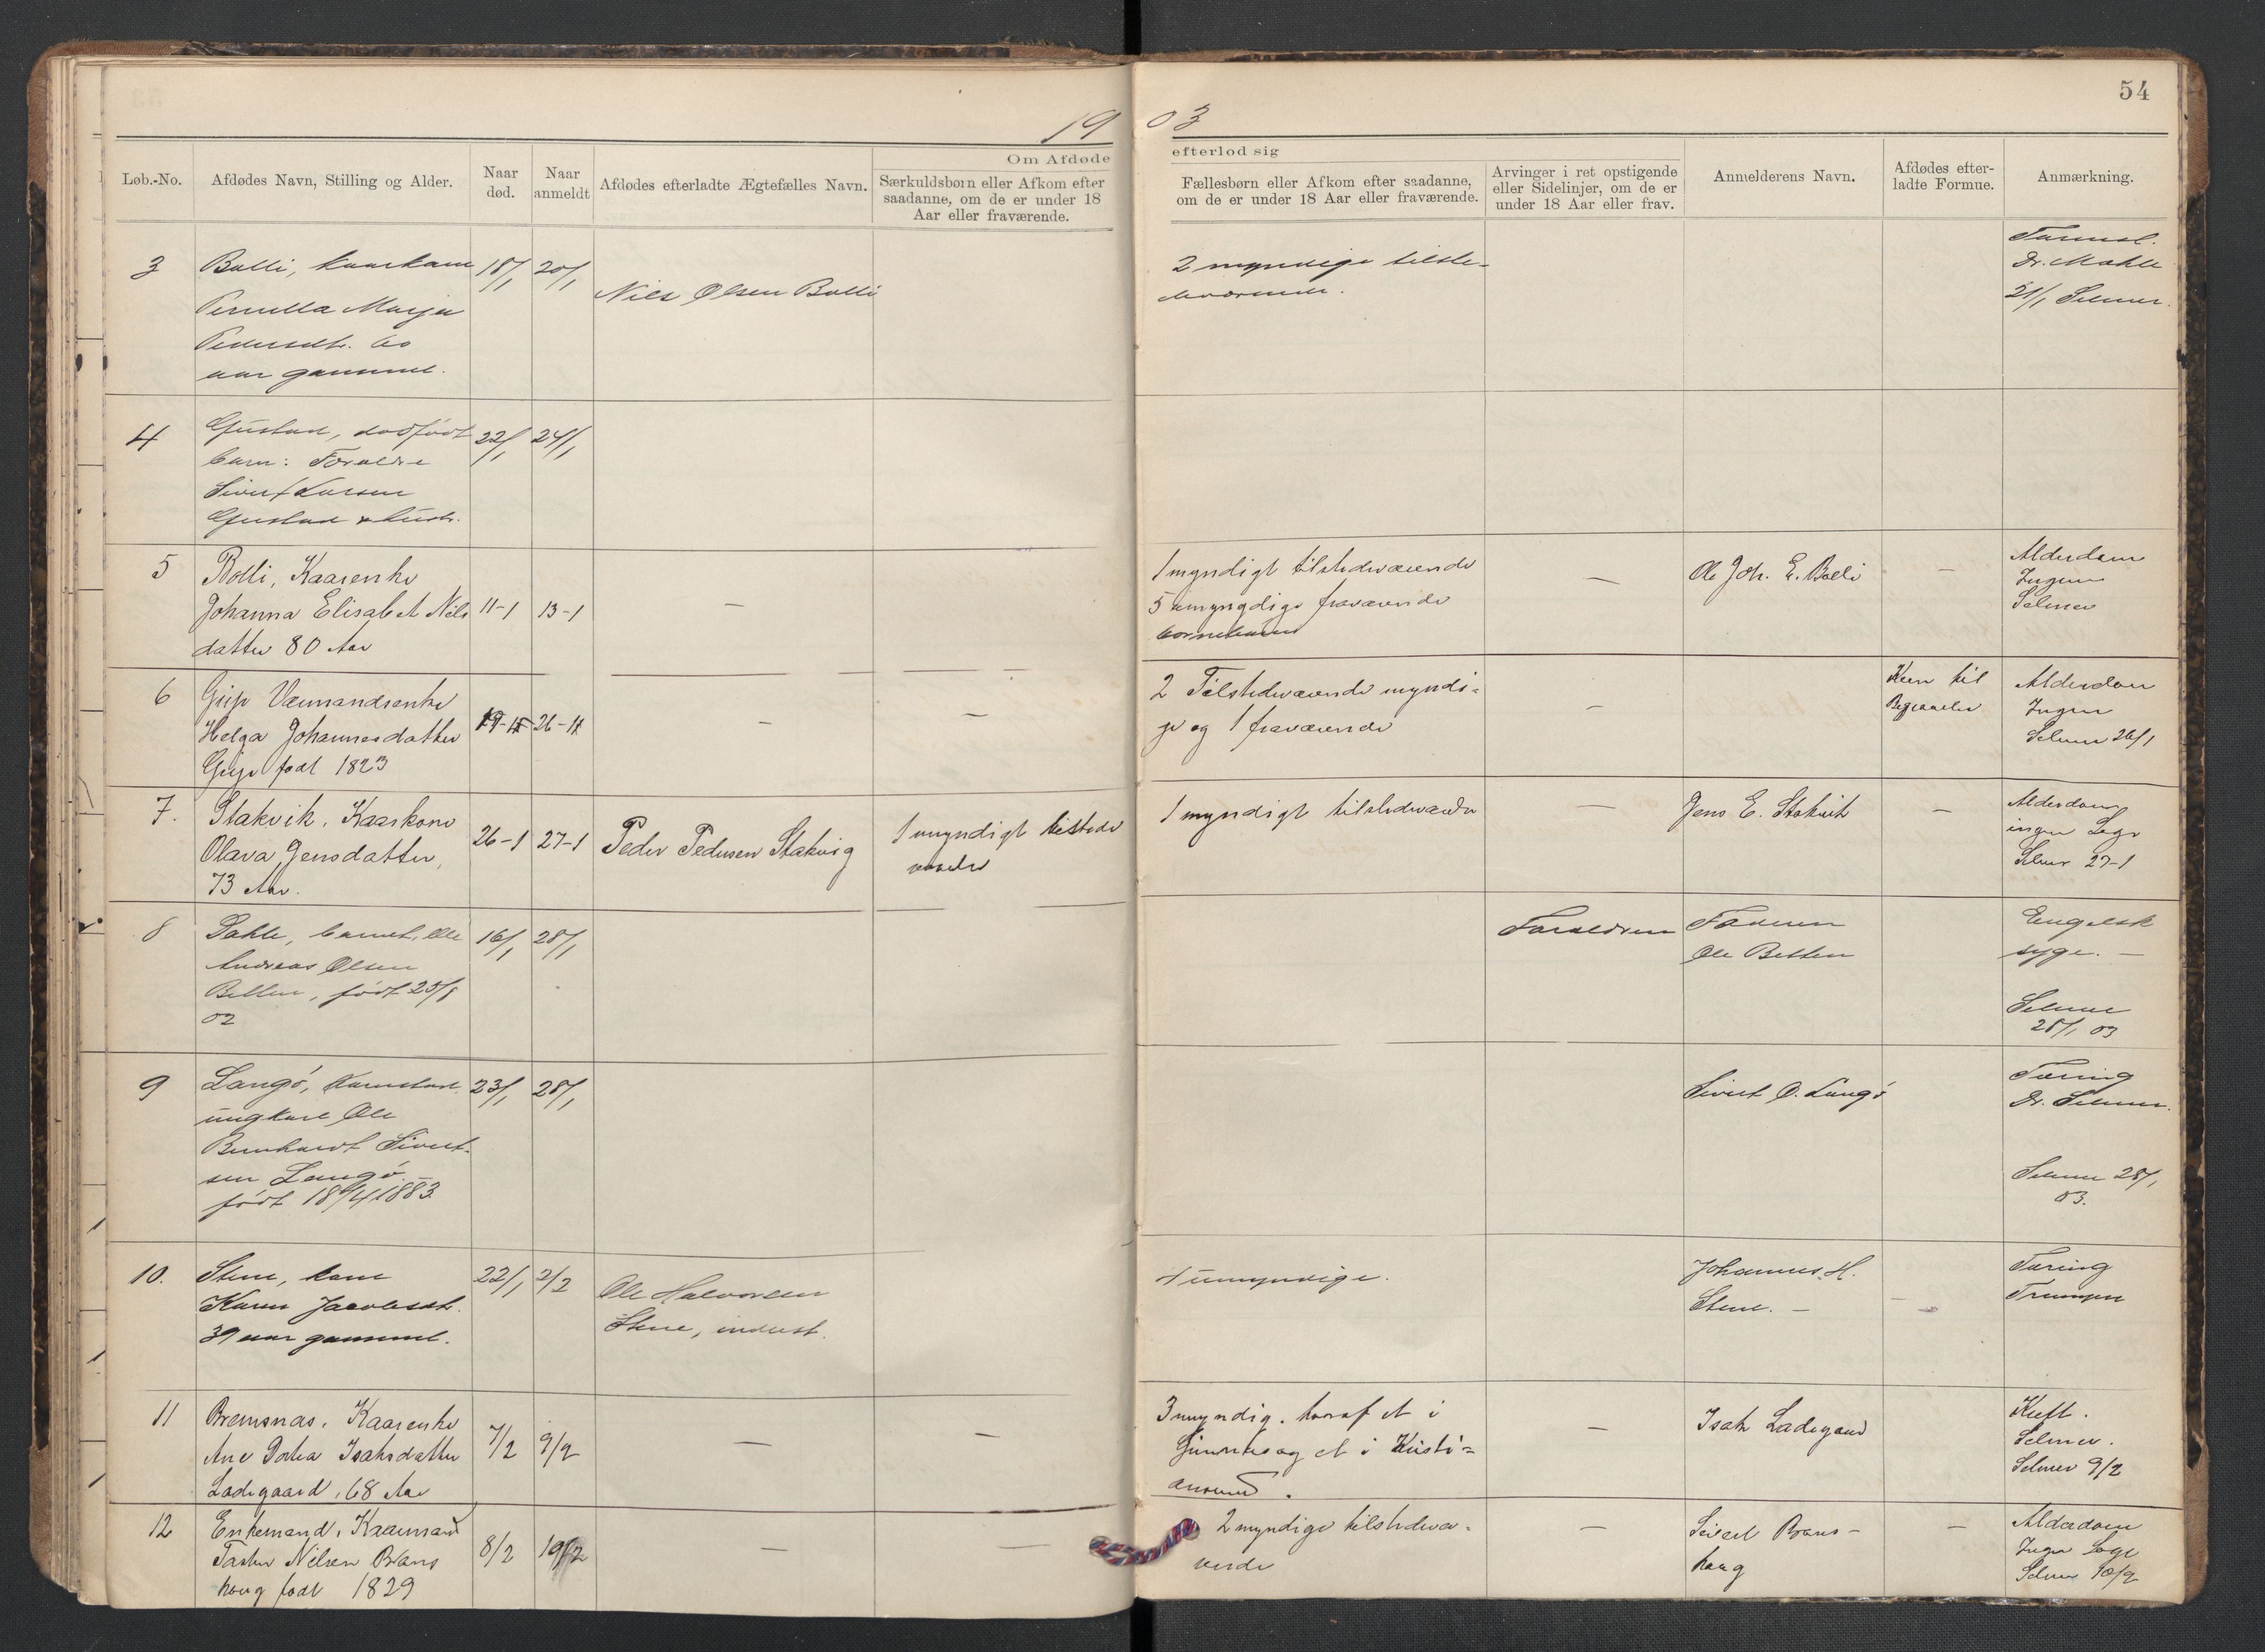 54
19 03
Om Afdøde efterlod sig
Løb.-No.
Afdødes Navn, Stilling og Alder.
Naar død.
Naar anmeldt
Afdødes efterladte Ægtefælles Navn.
Særkuldsbørn eller Afkom efter saadanne, om de er under 18 Aar eller fraværende.
Fællesbørn eller Afkom efter saadanne, om de er under 18 Aar eller fraværende.
Arvinger i ret opstigende eller Sidelinjer, om de er under 18 Aar eller frav.
Anmelderens Navn.
Afdødes efterladte Formue.
Anmærkning.
3
Bolli, kaarkone
Pernella Marja
Pedersdt. 60
aar gammel.
18/1
20/1
Nils Olsen Bolli
2 myndige tilste-
deværende.
Dr. Mohle
21/1 Selmer.
4
Gustad, dødfødt
barn: Forældre
Sivert Larsen
Gustad & hustr.
22/1
24/1
5
Bolli, Kaarenke
Johanna Elisabet Nils
datter 80 Aar
11-1
13-1
—
1 myndigt tilstedeværende
5 umyngdige fraværende
børnebørn
—
Ole Joh. E. Bolli
—
Alderdom
Ingen
Selmer
6
Grip Væmandsenke
Helga Johannesdatter
Grip født 1823
19-1
26-1
—
—
2 Tilstedeværende myndi=
ge og 1 fraværende
—
Kun til
Begravelse
Alderdom
Ingen
Selmer 26/1
7.
Stakvik, Kaarkone
Olava Jensdatter,
73 Aar.
26-1
27-1
Peder Pedersen Stakvig
1 myndigt tilstede
værende
1 myndigt tilstedeværende
—
Jens E. Stakvik
—
Alderdom
ingen Læge
Selmer 27-1
8
Dahle, barnet, Ole
Andreas Olsen
Betten, født 25/8
02
16/1
28/1
Forældrene
Faderen
Ole Betten
Engelsk
syge. —
Selmer
28/1 03
9
Langø, Karnstad
ungkarl Ole
Bernhardt Sivert-
sen Langø
født 18/4 1883.
23/1
28/1
Sivert O. Langø
Tæring
Dr. Selmer.
Selmer 28/1
03.
10.
Stene, kone
Karen Jacobsdt.
39 aar gammel.
22/1
2/2
Ole Halvorsen
Stene, inderst.
4 umyndige.
Johannes H.
Stene. —
—
Tæring
11
Bremsnæs, Kaarenke
Ane Dortea Isaksdatter
Ladegaard, 68 Aar
7/2
9/2
—
—
3 myndig. hvoraf et i
et i Kristi=
ansund.
—
Isak Ladegaard
Kræft.
Selmer.
Selmer 9/2
12
Enkemand, Kaarmand
Nilsen Brans
haug født 1829
8/2
10/2
—
—
2 myndige tilstedevæ=
rende
—
Sivert Brans-
haug
—
Alderdom
Ingen Læge
Selmer 10/2